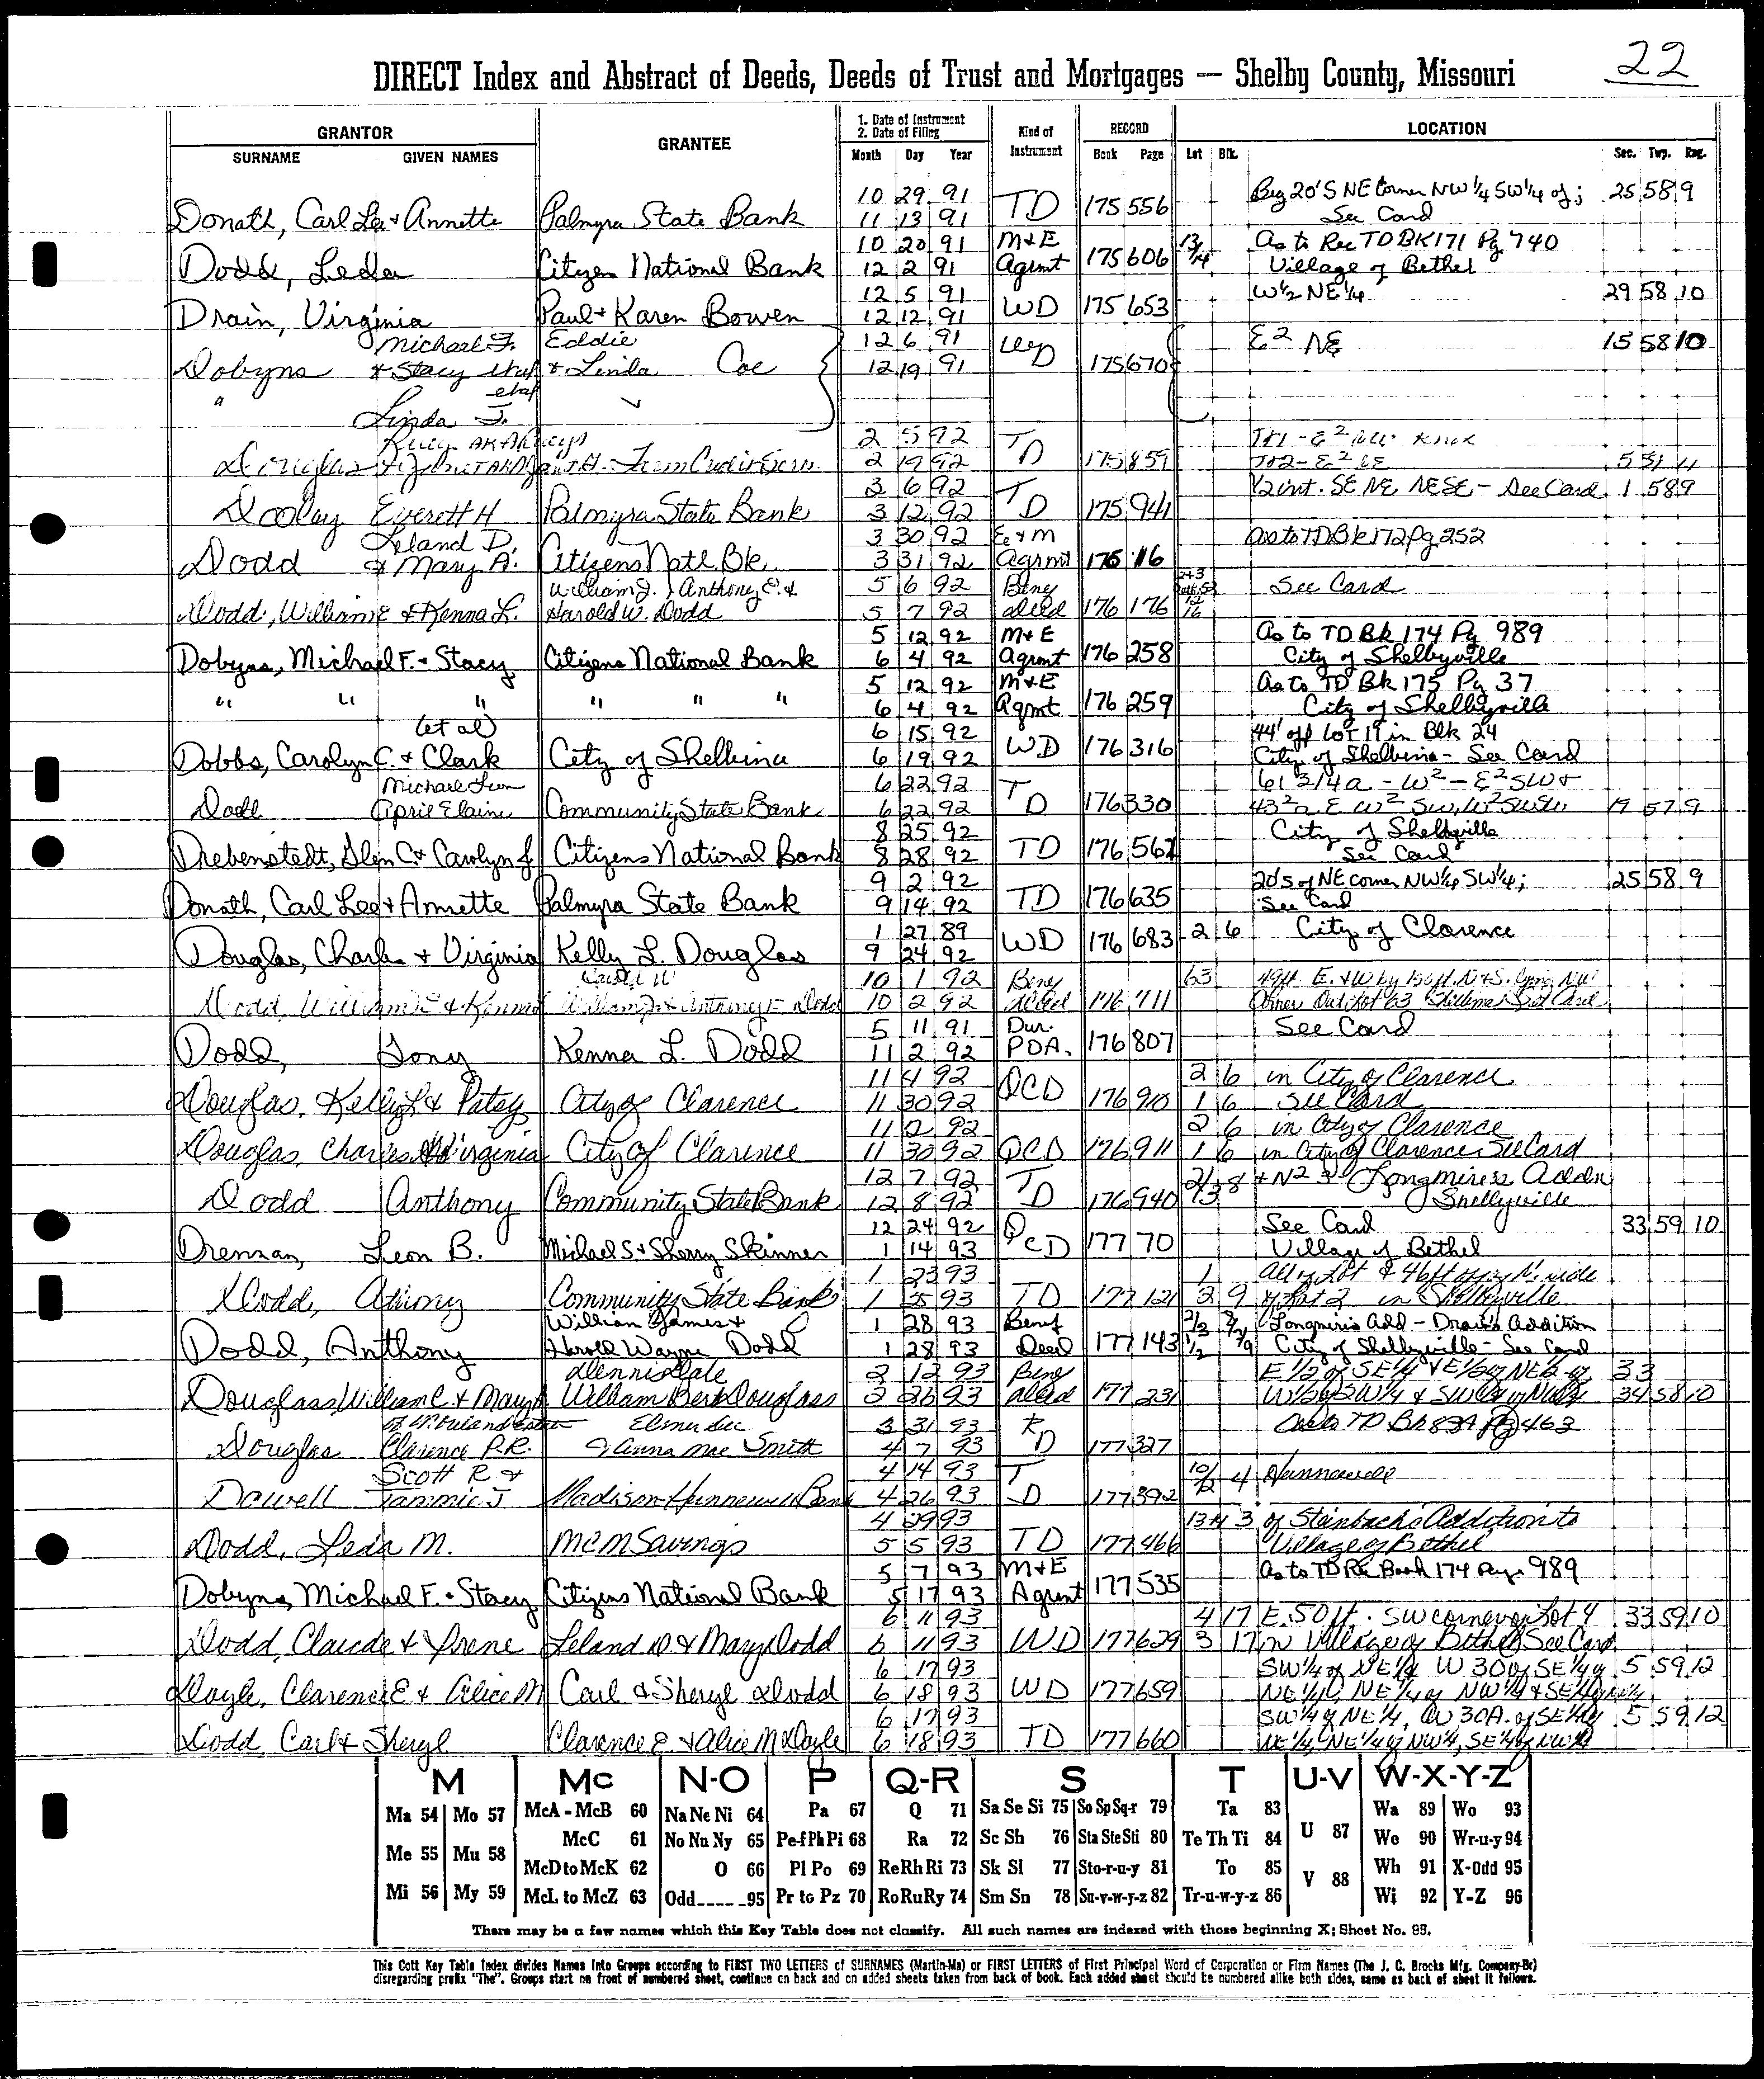 22
DIRECT Index and Abstract of Deeds, Deeds of Trust and Mortgages — Shelby County, Missouri
GRANTOR GRANTEE 1. Date of Instrument 2. Date of Filing Kind of Instrument RECORD LOCATION
SURNAME GIVEN NAMES Month Day Year Book Page Lot Blk. Sec. Twp. Rng.
10 29 91 Beg 20'S NE Corner NW 1/4 SW 1/4 of; 25 58 9
Donath, Carl Lee + Annette Palmyra State Bank 11 13 91 TD 175 556 See Card
10 20 91 M+E 13/14 As to Rec TD BK 171 Pg 740
Dodd, Leda Citizen National Bank 12 2 91 Agrmt 175 606 Village of Bethel
12 5 91 W 1/2 NE 1/4 29 58 10
Drain, Virginia Paul + Karen Bowen 12 12 91 WD 175 653
Michael F. Eddie 12 6 91 E2 NE 15 58 10
Dobyns + Stacy etal + Linda Coe 12 19 91 WD 175 670
" etal
Linda J.
2 5 92 TD
Douglas 2 19 92 175 859 5
3 6 92 1/2 int. SE NE, NESE - See Card 1 58 9
Dooley Everett H Palmyra State Bank 3 12 92 TD 175 941
Leland D. 3 30 92 E+M As to TD Bk 172 Pg 252
Dodd & Mary A. Citizens Natl Bk. 3 31 92 Agrmt 176 16
William J. Anthony E. & 5 6 92 Bene See Card
Dodd, William E & Kenna L. Harold W. Dodd 5 7 92 deed 176 176
5 12 92 M+E As to TD Bk 174 Pg 989
Dobyns, Michael F. + Stacy Citizens National Bank 6 4 92 Agrmt 176 258 City of Shelbyville
5 12 92 M+E As to TD Bk 175 Pg 37
" " " " " " 6 4 92 Agmt 176 259 City of Shelbyville
(et al) 6 15 92 44' off Lot 19 in Blk 24
Dobbs, Carolyn C. & Clark City of Shelbina 6 19 92 WD 176 316 City of Shelbina - See Card
Michael Leon 6 22 92 61 3/4 a - W2 - E2 SW +
Dodd April Elaine Community State Bank 6 22 92 TD 176 330 19 57 9
8 25 92 City of Shelbyville
Drebenstedt, Glen C + Carolyn J Citizens National Bank 8 28 92 TD 176 562 See Card
9 2 92 20'S of NE corner NW 1/4 SW 1/4; 25 58 9
Donath, Carl Lee + Annette Palmyra State Bank 9 14 92 TD 176 635 See Card
1 27 89 2 6 City of Clarence
Douglas, Charles + Virginia Kelly L. Douglas 9 24 92 WD 176 683
10 1 92 Bene 63
Dodd, William E & Kenna William J & Anthony E Dodd 10 2 92 deed 176 711
5 11 91 Dur. See Card
Dodd, Tony Kenna L. Dodd 11 2 92 POA. 176 807
11 4 92 2 6 in City of Clarence
Douglas, Kelly L & Patsy City of Clarence 11 30 92 QCD 176 910 1 6 See Card
11 2 92 2 6 in City of Clarence
Douglas, Charles & Virginia City of Clarence 11 30 92 QCD 176 911 1 6 in City of Clarence See Card
12 7 92 + N2 3 Longmires Addn
Dodd Anthony Community State Bank 12 8 92 TD 176 940 Shelbyville
12 24 92 See Card 33 59 10
Drennan, Leon B. Michael S. + Sherry Skinner 1 14 93 QCD 177 70 Village of Bethel
1 23 93 1 All of Lot & 46 ft off of N. side
Dodd, Athony Community State Bank 1 25 93 TD 177 121 2 9 of Lot 2 in Shelbyville
William James + 1 28 93 Benf Longmire's Add - Drain's Addition
Dodd, Anthony Harold Wayne Dodd 1 28 93 Deed 177 143 City of Shelbyville - See Card
Dennis Dale 2 12 93 Bene E 1/2 of SE 1/4 + E 1/2 of NE 1/2 of 33
Douglass, William C. & Mary William Berk Douglass 2 26 93 deed 177 231 34 58 10
Elmer Lee 3 31 93 As to TD Bk 839 Pg 463
Douglas Clarence P.R. & Anna Mae Smith 4 7 93 RD 177 327
Scott R & 4 14 93 10/12 4 Hunnewell
Dowell Tammie J Madison Hunnewell Bank 4 26 93 TD 177 392
4 29 93 13+14 3 of Stainbach's Addition to
Dodd, Leda M. MCM Savings 5 5 93 TD 177 466 Village of Bethel
5 7 93 M+E As to TD Re Book 174 Page 989
Dobyns, Michael F. + Stacy Citizens National Bank 5 17 93 Agrmt 177 535
6 11 93 4 17 E. 50 ft. SW corner of Lot 4 33 59 10
Dodd, Claude & Irene Leland D. & Mary Dodd 6 11 93 WD 177 629 3 17 in Village of Bethel See Card
6 17 93 SW 1/4 of NE 1/4 W 30 of SE 1/4 of 5 59 12
Doyle, Clarence E & Alice M Carl & Sheryl Dodd 6 18 93 WD 177 659 NE 1/4, NE 1/4 of NW 1/4 & SE 1/4 of NW 1/4
6 17 93 SW 1/4 of NE 1/4, W 30A. of SE 1/4 of 5 59 12
Dodd, Carl & Sheryl Clarence E. & Alice M Doyle 6 18 93 TD 177 660 NE 1/4, NE 1/4 of NW 1/4, SE 1/4 of NW 1/4
M Mc N-O P Q-R S T U-V W-X-Y-Z
Ma 54 Mo 57 McA - McB 60 Na Ne Ni 64 Pa 67 Q 71 Sa Se Si 75 So Sp Sq-r 79 Ta 83 Wa 89 Wo 93
Me 55 Mu 58 McC 61 No Nu Ny 65 Pe-f Ph Pi 68 Ra 72 Sc Sh 76 Sta Ste Sti 80 Te Th Ti 84 U 87 We 90 Wr-u-y 94
McD to McK 62 O 66 Pl Po 69 Re Rh Ri 73 Sk Sl 77 Sto-r-u-y 81 To 85 V 88 Wh 91 X-Odd 95
Mi 56 My 59 McL to McZ 63 Odd____95 Pr to Pz 70 Ro Ru Ry 74 Sm Sn 78 Su-v-w-y-z 82 Tr-u-w-y-z 86 Wi 92 Y-Z 96
There may be a few names which this Key Table does not classify. All such names are indexed with those beginning X; Sheet No. 95.
This Cott Key Table Index divides Names into Groups according to FIRST TWO LETTERS of SURNAMES (Martin-Ma) or FIRST LETTERS of First Principal Word of Corporation or Firm Names (The J. C. Brocks Mfg. Company-Br)
disregarding prefix "The". Groups start on front of numbered sheet, continue on back and on added sheets taken from back of book. Each added sheet should be numbered alike both sides, same as back of sheet it follows.